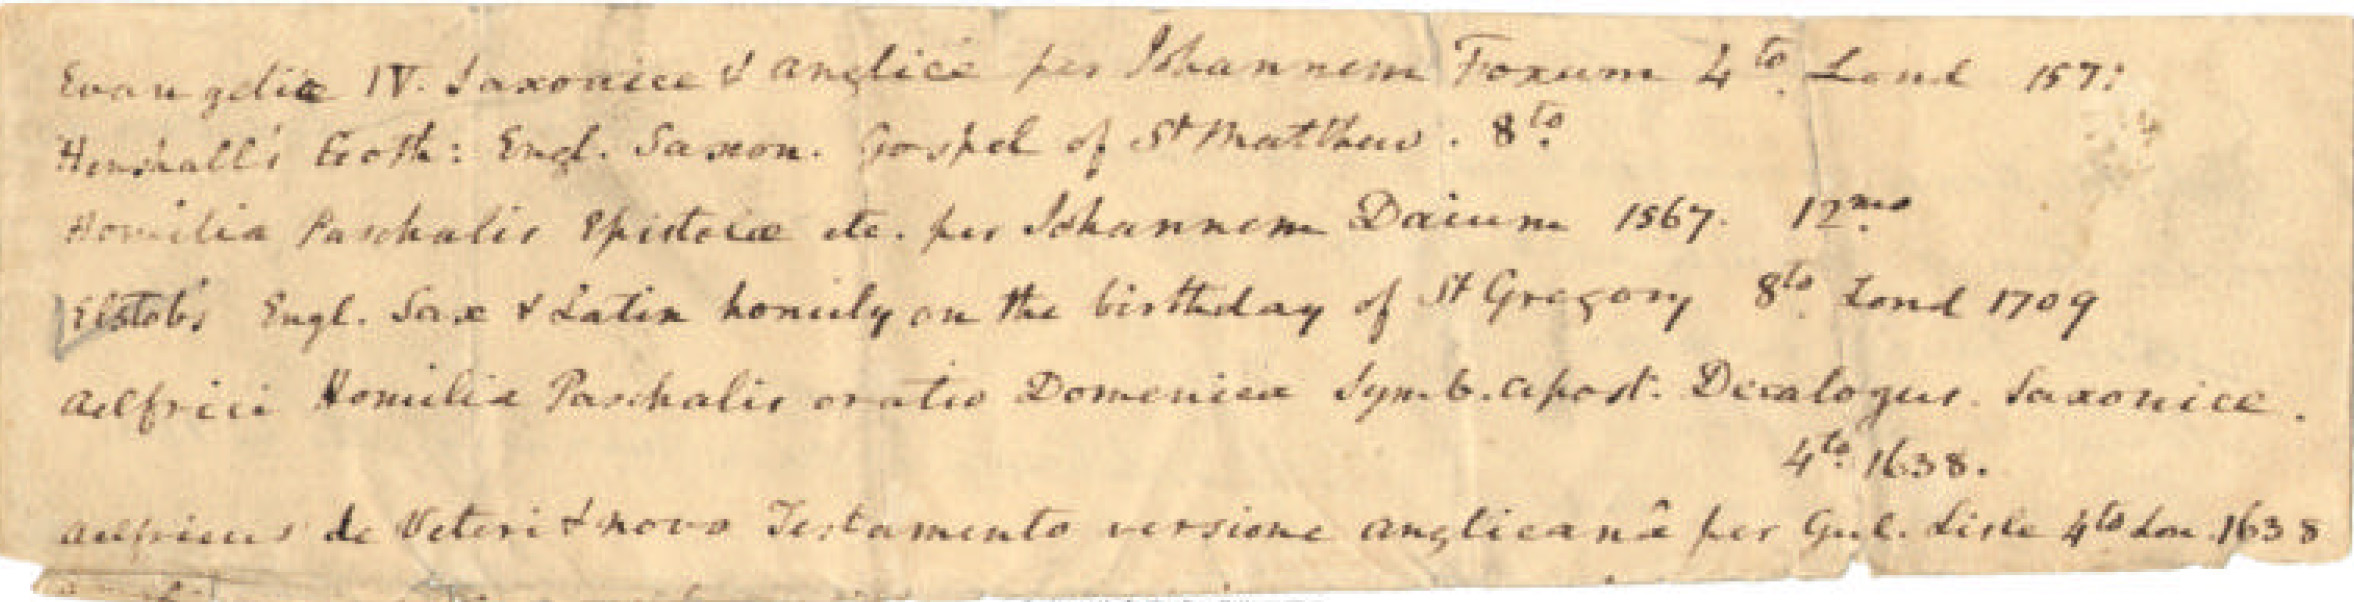 Evangelia IV. Saxonice & anglice per Johannem Foxum 4to. Lond 1571
Henshall's Goth: Engl. Saxon. Gospel of St Matthew. 8to.
Homilia Paschalis Epistolæ etc. per Johannem Daium 1567. 12mo
Elstob's Engl. Sax & Latin homily on the birthday of St Gregory 8to. Lond 1709
Aelfrici Homilia Paschalis oratio Domenica Symb. apost. Decalogus. Saxonice.
4to. 1638.
Aelfricus de Veteri & novo Testamento versione anglicanâ per Gul. Lisle 4to Lon. 1638